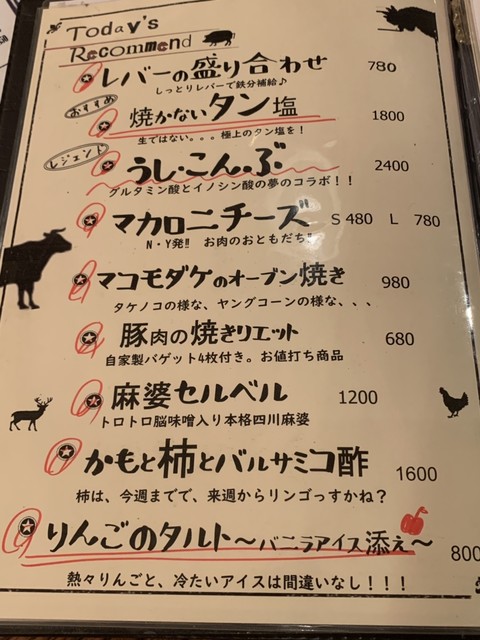 Today's
Recommend
レバーの盛り合わせ 780
しっとりレバーで鉄分補給♪
おすすめ
焼かないタン塩 1800
生ではない。。。極上のタン塩を!
レジェンド
うし・こん・ぶ 2400
グルタミン酸とイノシン酸の夢のコラボ!!
マカロニチーズ S 480 L 780
N・Y発!! お肉のおともだち!!
マコモダケのオーブン焼き 980
タケノコの様な、ヤングコーンの様な、、、
豚肉の焼きリエット 680
自家製バゲット4枚付き。お値打ち商品
麻婆セルベル 1200
トロトロ脳味噌入り本格四川麻婆
かもと柿とバルサミコ酢 1600
柿は、今週までで、来週からリンゴっすかね?
りんごのタルト～バニラアイス添え～ 800
熱々りんごと、冷たいアイスは間違いなし!!!